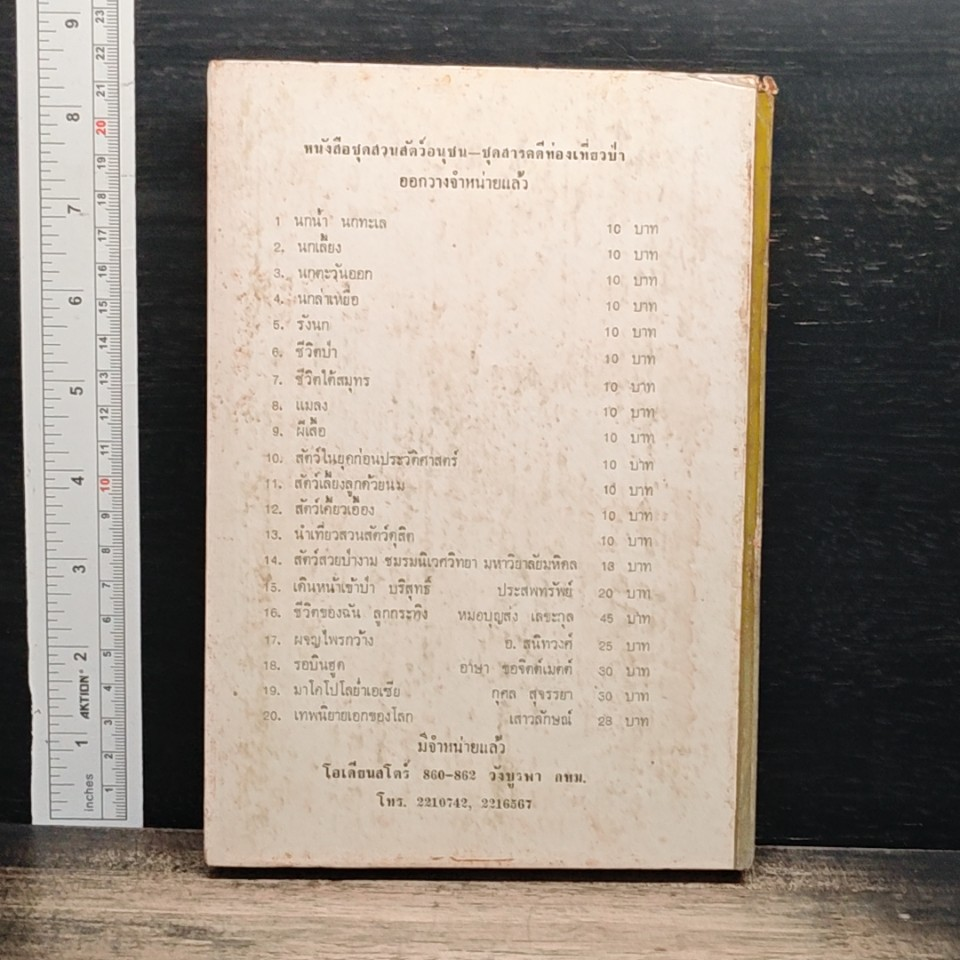 หนังสือชุดสวนสัตว์อนุชน—ชุดสารคดีท่องเที่ยวป่า
ออกวางจำหน่ายแล้ว
1 นกน้ำ นกทะเล 10 บาท
2. นกเลี้ยง 10 บาท
3. นกตะวันออก 10 บาท
4. นกล่าเหยื่อ 10 บาท
5. รังนก 10 บาท
6. ชีวิตป่า 10 บาท
7. ชีวิตใต้สมุทร 10 บาท
8. แมลง 10 บาท
9. ผีเสื้อ 10 บาท
10. สัตว์ในยุคก่อนประวัติศาสตร์ 10 บาท
11. สัตว์เลี้ยงลูกด้วยนม 10 บาท
12. สัตว์เคี้ยวเอื้อง 10 บาท
13. นำเที่ยวสวนสัตว์ดุสิต 10 บาท
14. สัตว์สวยป่างาม ชมรมนิเวศวิทยา มหาวิทยาลัยมหิดล 18 บาท
15. เดินหน้าเข้าป่า บริสุทธิ์ ประสพทรัพย์ 20 บาท
16. ชีวิตของฉัน ลูกกระทิง หมอบุญส่ง เลขะกุล 45 บาท
17. ผจญไพรกว้าง อ. สนิทวงศ์ 25 บาท
18. รอบินฮูด อาษา ขอจิตต์เมตต์ 30 บาท
19. มาโคโปโลย่ำเอเซีย กุศล สุจรรยา 30 บาท
20. เทพนิยายเอกของโลก เสาวลักษณ์ 28 บาท
มีจำหน่ายแล้ว
โอเดียนสโตร์ 860-862 วังบูรพา กทม.
โทร. 2210742, 2216567
inches 1 2 3 4 5 6 7 8 9
AKTION
1 2 3 4 5 6 7 8 9 10 11 12 13 14 15 16 17 18 19 20 21 22 23